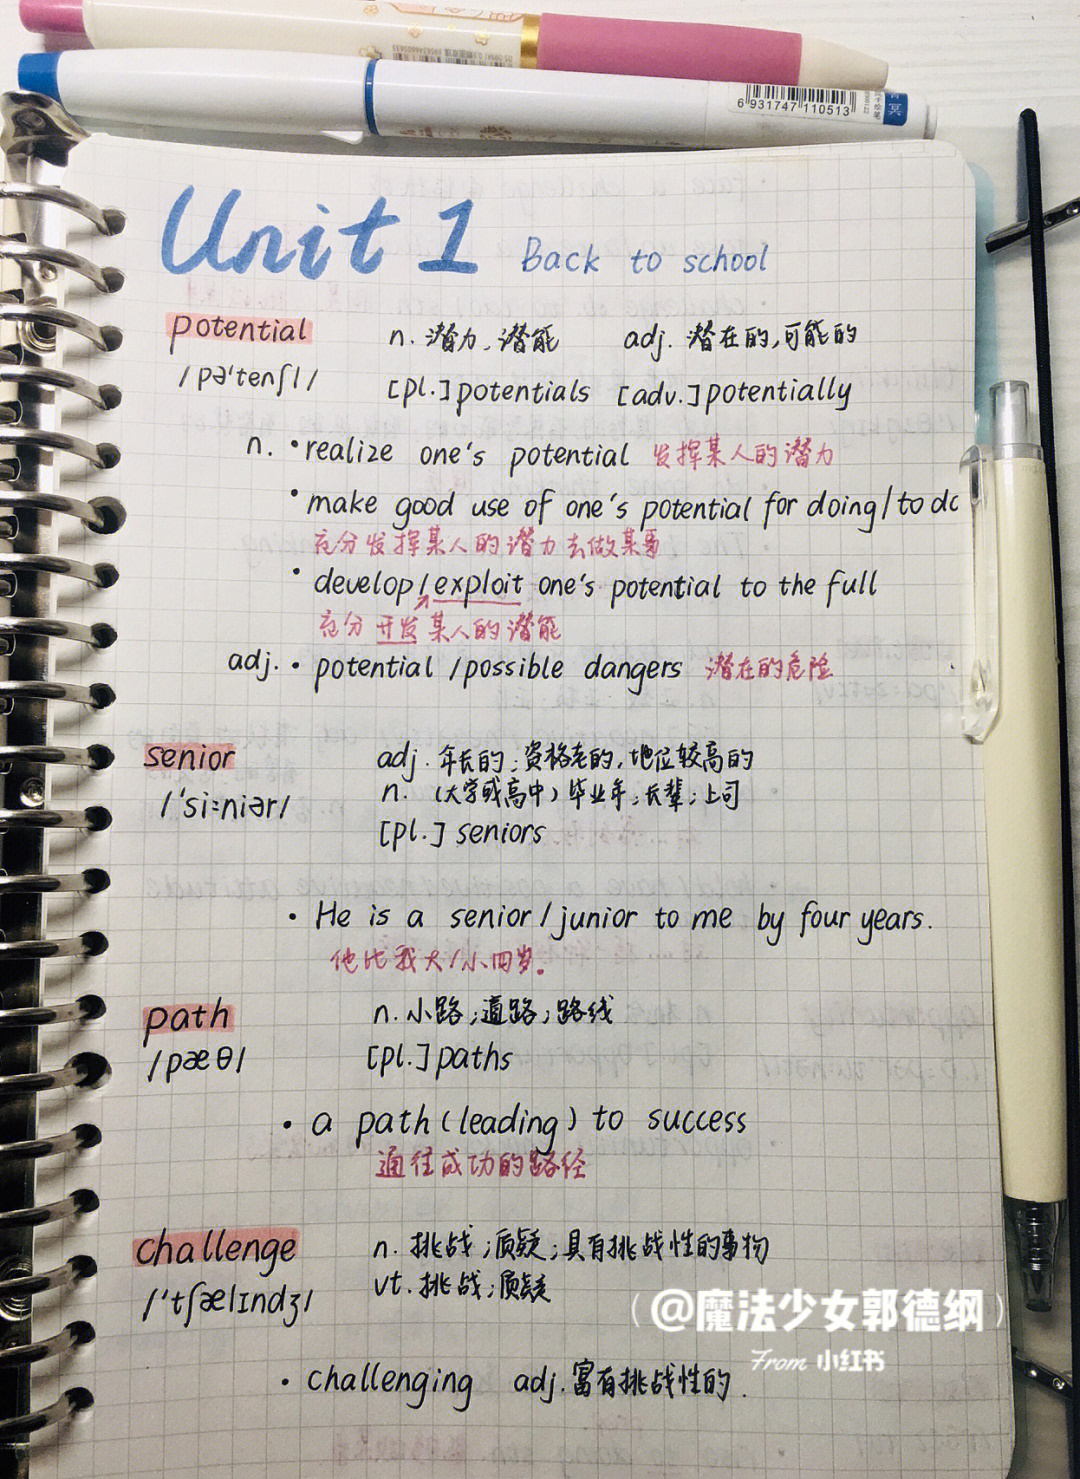 6 931747 110513
Unit 1 Back to school
potential n. 潜力、潜能 adj. 潜在的,可能的
/pə'tenʃl/ [pl.]potentials [adv.]potentially
n. • realize one's potential 发挥某人的潜力
• make good use of one's potential for doing/to do
充分发挥某人的潜力去做某事
• develop/exploit one's potential to the full
充分开发某人的潜能
adj. • potential /possible dangers 潜在的危险
senior adj. 年长的;资格老的,地位较高的
/'si:niər/ n. (大学或高中)毕业年;长辈;上司
[pl.] seniors
• He is a senior/junior to me by four years.
他比我大/小四岁.
path n. 小路;道路;路线
/pæθ/ [pl.]paths
• a path(leading) to success
通往成功的路径
challenge n. 挑战;质疑;具有挑战性的事物
/'tʃælɪndʒ/ vt. 挑战;质疑
• challenging adj. 富有挑战性的.
(@魔法少女郭德纲)
From 小红书